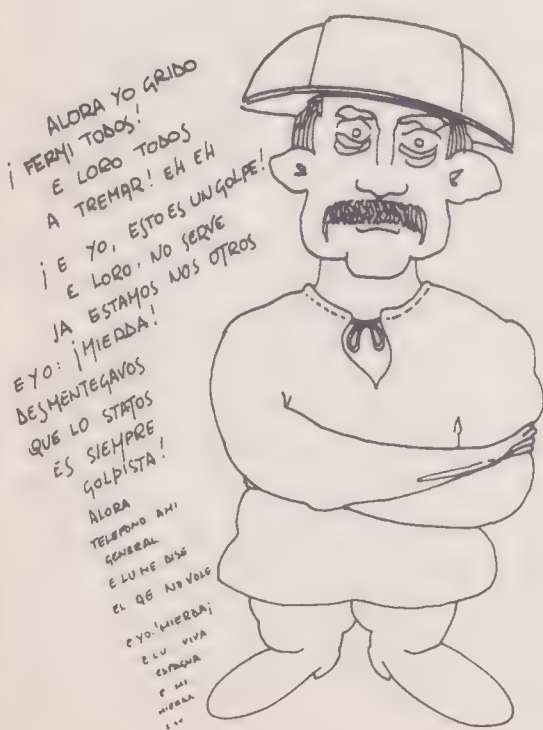 ALORA YO GRIDO
¡ FERMI TODOS!
E LORO TODOS
A TREMAR! EH EH
¡ E YO, ESTO ES UN GOLPE!
E LORO, NO SERVE
JA ESTAMOS NOS OTROS
E YO: ¡MIERDA!
DESMENTEGAVOS
QUE LO STATOS
ES SIEMPRE
GOLPISTA!
ALORA
TELEFONO AMI
GENERAL
E LU ME DISE
EL QE NO VOLE
E YO: 'MIERDA¡
E LU VIVA
ESPAGNA
E MI
MIERDA
E LU